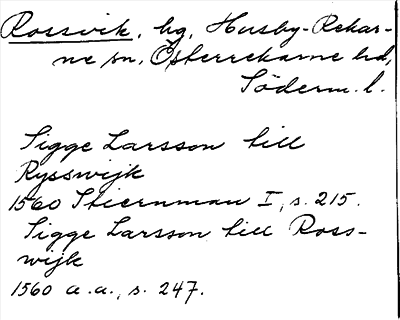 Rossvik, hg, Husby-Rekar-
ne sn, Österrekarne hd,
Söderm. l.
Sigge Larsson till
Rysswijk
1560 Stiernman I, s. 215.
Sigge Larsson till Ross-
wijk
1560 a.a., s. 247.